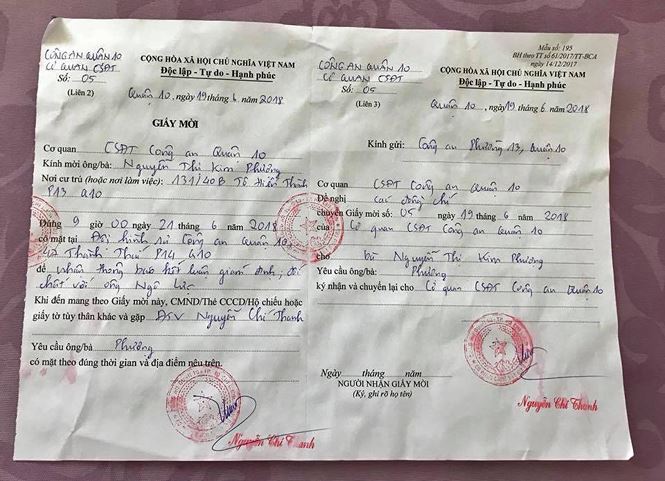 CÔNG AN QUẬN 10
CƠ QUAN CSĐT
Số: 05
(Liên 2)
CỘNG HÒA XÃ HỘI CHỦ NGHĨA VIỆT NAM
Độc lập - Tự do - Hạnh phúc
Quận 10, ngày 19 tháng 6 năm 2018
GIẤY MỜI
Cơ quan CSĐT Công an Quận 10
Kính mời ông/bà: Nguyễn Thị Kim Phương
Nơi cư trú (hoặc nơi làm việc): 131/40B Tô Hiến Thành
P13 Q10
Đúng 9 giờ 00 ngày 21 tháng 6 năm 2018
có mặt tại Đội hình sự Công an Quận 10
47 Thành Thái P14 Q10
để nhận thông báo kết luận giám định; đối
chất với ông Ngô Lực
Khi đến mang theo Giấy mời này, CMND/Thẻ CCCD/Hộ chiếu hoặc
giấy tờ tùy thân khác và gặp ĐTV Nguyễn Chí Thanh
Yêu cầu ông/bà Phương
có mặt theo đúng thời gian và địa điểm nêu trên.
Nguyễn Chí Thanh
Mẫu số: 195
BH theo TT số 61/2017/TT-BCA
ngày 14/12/2017
CÔNG AN QUẬN 10
CƠ QUAN CSĐT
Số: 05
(Liên 3)
CỘNG HÒA XÃ HỘI CHỦ NGHĨA VIỆT NAM
Độc lập - Tự do - Hạnh phúc
Quận 10, ngày 19 tháng 6 năm 2018
Kính gửi: Công an Phường 13, Quận 10
Cơ quan CSĐT Công an Quận 10
Đề nghị các đồng chí
chuyển Giấy mời số: 05 ngày 19 tháng 6 năm 2018
của Cơ quan CSĐT Công an Quận 10
cho bà Nguyễn Thị Kim Phương
Yêu cầu ông/bà Phương
ký nhận và chuyển lại cho Cơ quan CSĐT Công an Quận 10
Ngày tháng năm
NGƯỜI NHẬN GIẤY MỜI
(Ký, ghi rõ họ tên)
Nguyễn Chí Thanh